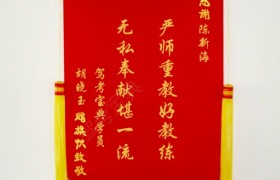 感谢陈新海
严师重教好教练
无私奉献堪一流
驾考宝典学员
胡晓玉赠旗致敬